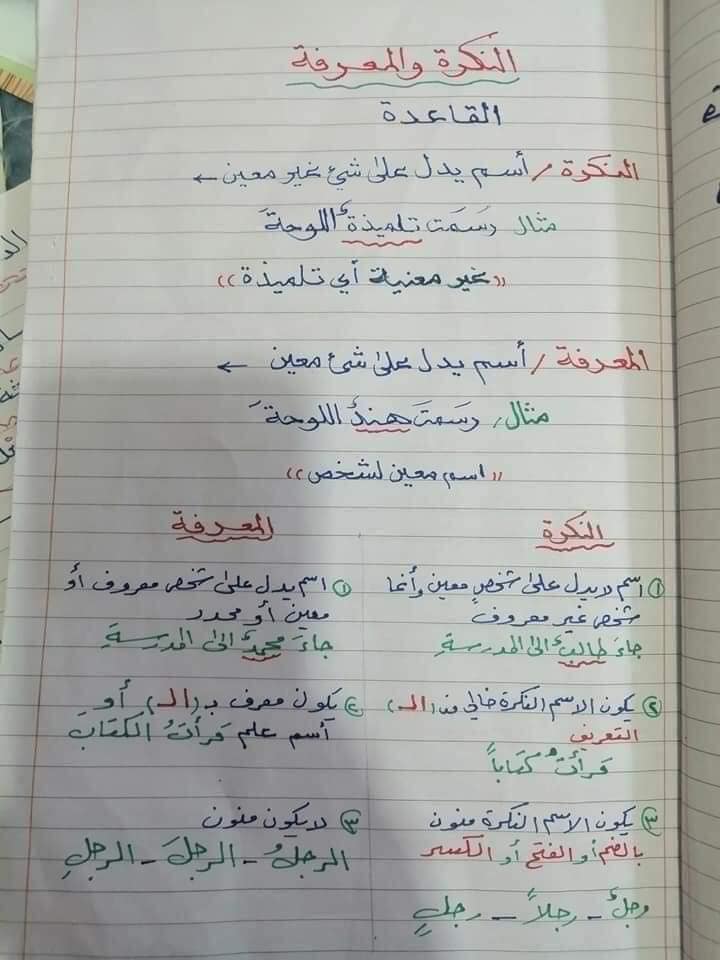 النكرة والمعرفة
القاعدة
النكرة / أسم يدل على شئ غير معين ←
مثال رسَمَت تلميذةٌ اللوحةَ
((غير معنية أي تلميذة))
المعرفة / أسم يدل على شئ معين ←
مثال/ رسَمتَ هندٌ اللوحةَ
((اسم معين لشخص))
النكرة
① اسم لايدل على شخصٍ معين وأنما
شخص غير معروف
جاءَ طالبٌ الى المدرسةِ
② يكون الاسم النكرة خالي من (الـ)
التعريف
قرأتُ كتاباً
③ يكون الاسم النكرة منون
بالضم أو الفتح أو الكسر
رجلٌ - رجلاً - رجلٍ
المعرفة
① اسم يدل على شخص معروف أو
معين أو محدد
جاءَ محمدٌ الى المدرسةِ
② يكون معرف بـ (الـ) أو
أسم علم قرأتُ الكتابَ
③ لايكون منون
الرجلُ - الرجلَ - الرجلِ